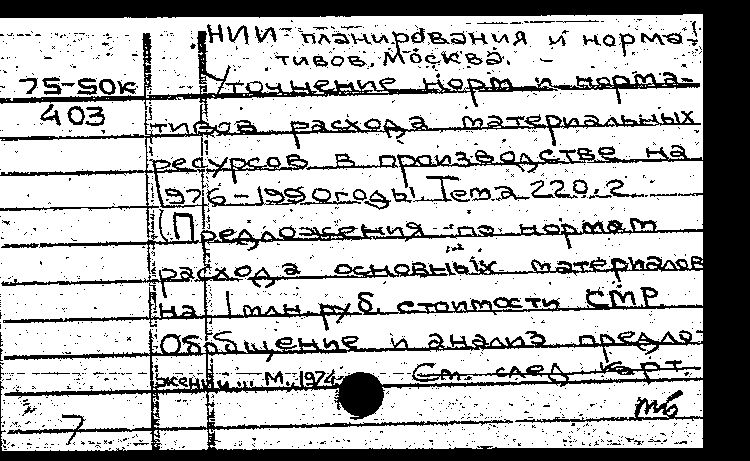 НИИ планирования и норма-
тивов. Москва.
75-50к
Уточнение норм и норма-
403
тивов расхода материальных
ресурсов в производстве на
1976-1990 годы. Тема 220.2
(Предложения по нормам
расхода основных материалов
на 1 млн. руб. стоимости СМР.
Обобщение и анализ предло-
жений... М., 1974.
См. след карт.
7